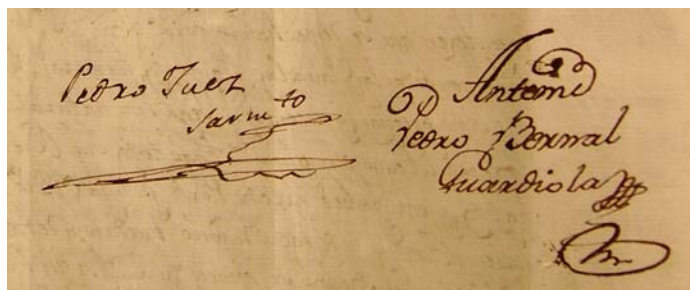 Pedro Juez
Sarm to
Antemi
Pedro Bernal
Guardiola